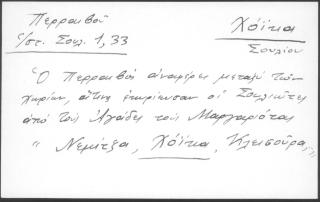 Περραιβοῦ
ἱστ. Σουλ. 1, 33
Χόϊκα
Σουλίου
Ὁ Περραιβός ἀναφέρει μεταξύ τῶν
χωρίων, ἅτινα ἐκυρίευσαν οἱ Σουλιῶτες
ἀπό τούς Ἀγάδες τοῦ Μαργαρίτας
"Νεμίτζα, Χόϊκα, Κλεισούρα,"